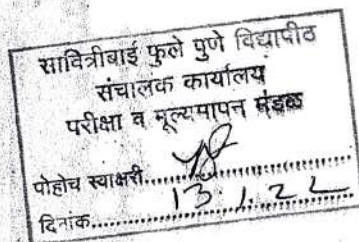 सावित्रीबाई फुले पुणे विद्यापीठ
संचालक कार्यालय
परीक्षा व मूल्यमापन मंडळ
पोहोच स्वाक्षरी....................
दिनांक.....13.1.22